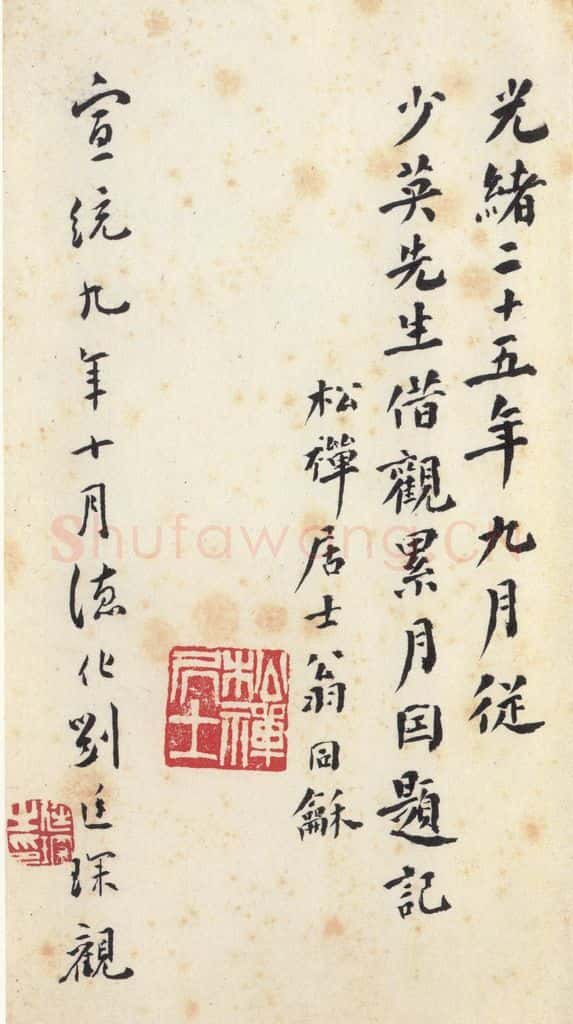 光緒二十五年九月從
少英先生借觀累月因題記
松禪居士翁同龢
松禪居士
宣統九年十月德化劉廷琛觀
Shufawang.cn